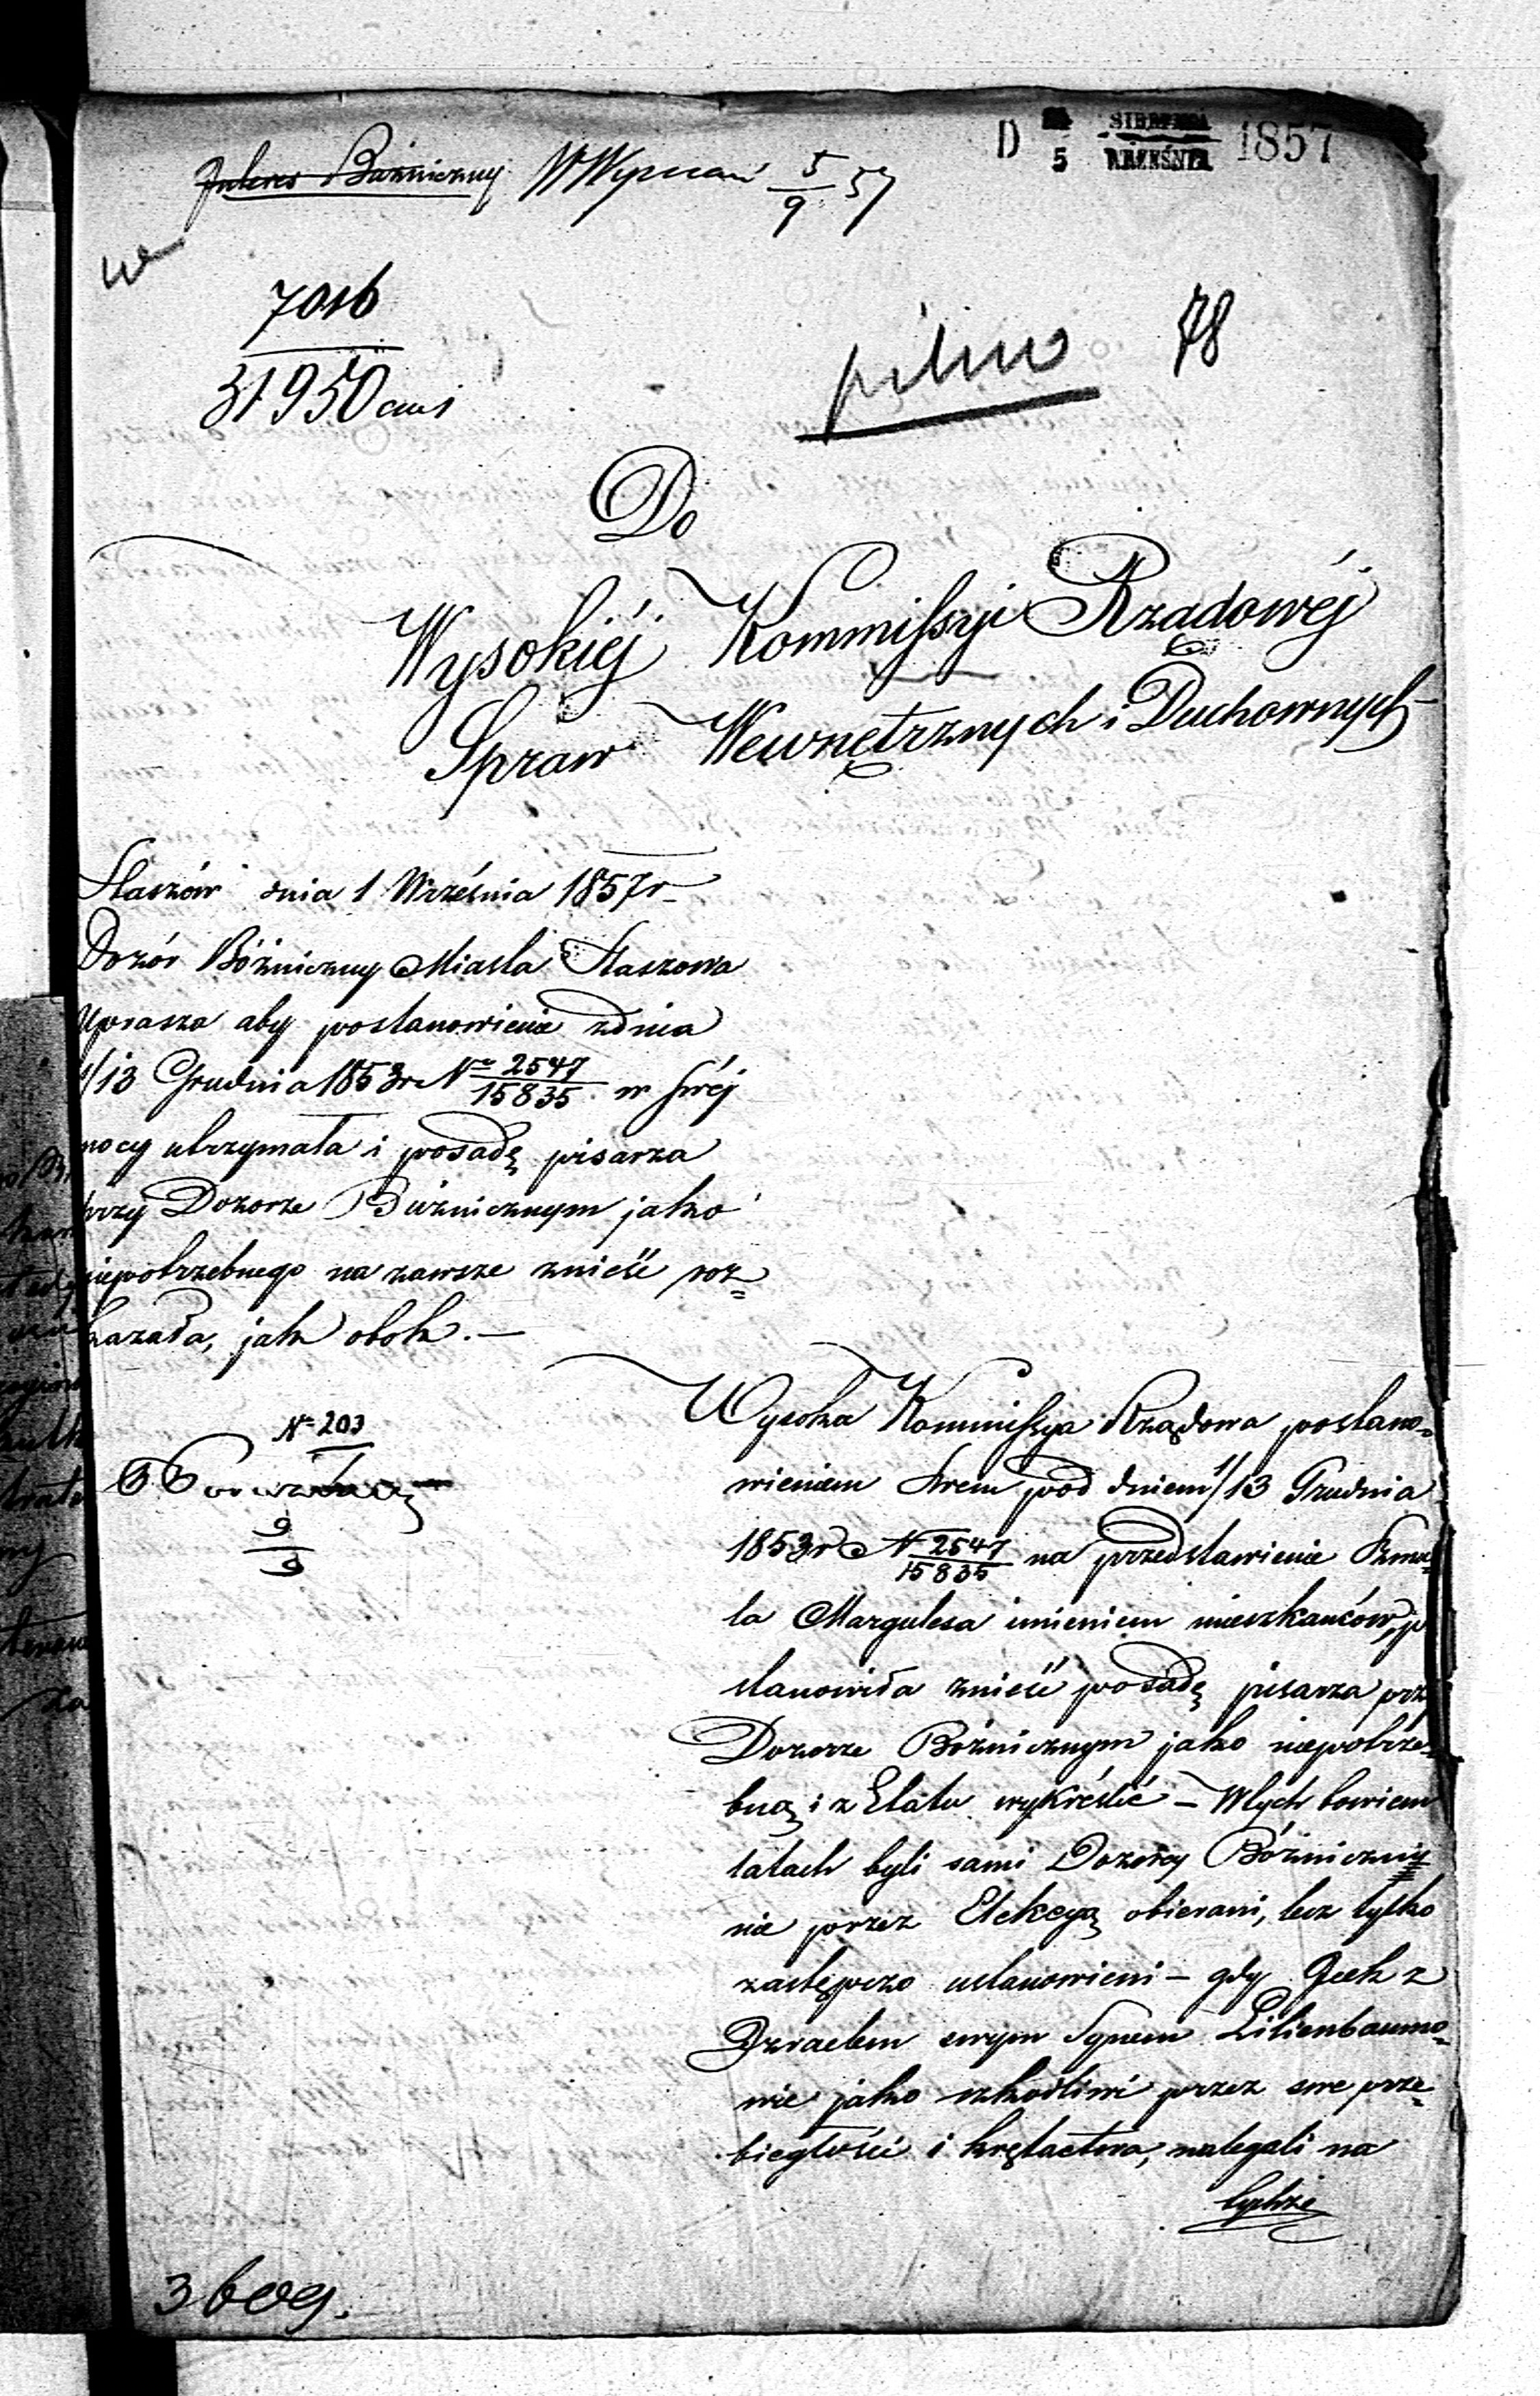 D 5 SIERPNIA WRZEŚNIA 1857
Bóżniczny 5/9 57
7016
31950
78
pilno
Do
Wysokiéj Kommissyi Rządowéj
Spraw Wewnętrznych i Duchownych
Staszów dnia 1 Września 1857 r
Dozór Bóżniczny Miasta Staszowa
Uprasza aby postanowienie z dnia
1/13 Grudnia 1853 r No 2547/15835 w swéj
mocy utrzymała i posadę pisarza
przy Dozorze Bóżnicznym jako
niepotrzebnego na zawsze znieść roz=
kazała, jak obok. —
No 203
9/9
Wysoka Kommissya Rządowa postano=
wieniem Swem pod dniem 1/13 Grudnia
1853 r N 2547/15835 na przedstawienie Szmu
la Margulesa imieniem mieszkańców, p
stanowiła znieść posadę pisarza prz
Dozorze Bóżnicznym jako niepotrze=
bną i z Etatu wykréślić — W tych bowiem
latach byli sami Dozorcy Bóżniczny
nie przez Elekcyą obierani, lecz tylko
zastępczo ustanowieni — gdy Icek z
Izraelem swym Synem Lilienbaumo=
wie jako szkodliwi przez swe prze=
biegłości i krętactwa, nalegali na
tychże
3609.